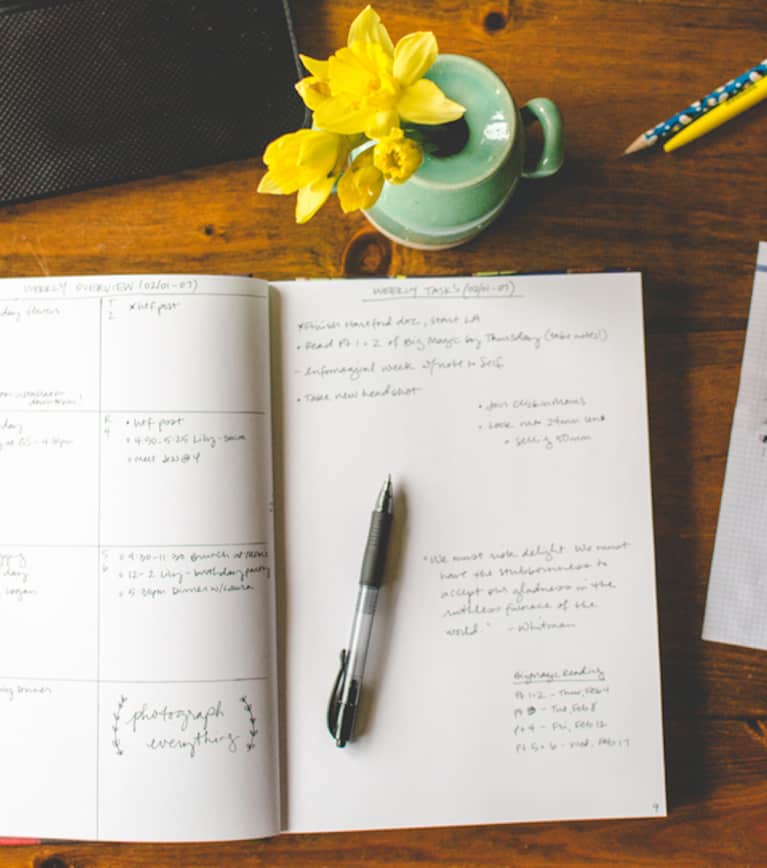 WEEKLY OVERVIEW (02/01-07)
T * htf post
2
R • htf post
4 • 4:50-5:25 Lily-
• meet @ 4
S • 9:30-11:30 Brunch at
6 • 12-2 Lily-birthday party
• 5:30pm Dinner w/Laura
day
day
Dinner
photograph
everything
WEEKLY TASKS (02/01-07)
* Finish Hartford doc, start LA
• Read Pt 1+2 of Big Magic by Thursday (take notes!)
- week w/note to Self
• Take new headshot
• Join Clickin Moms
• Look into 24mm lens
• Selling 50mm
"We must risk delight. We must
have the stubbornness to
accept our gladness in the
ruthless furnace of the
world." - Whitman
Big Magic Reading
Pt 1-2 - Thur, Feb 4
Pt 3 - Tue, Feb 8
pt 4 - Fri, Feb 12
Pt 5+6 - Wed, Feb 17
9